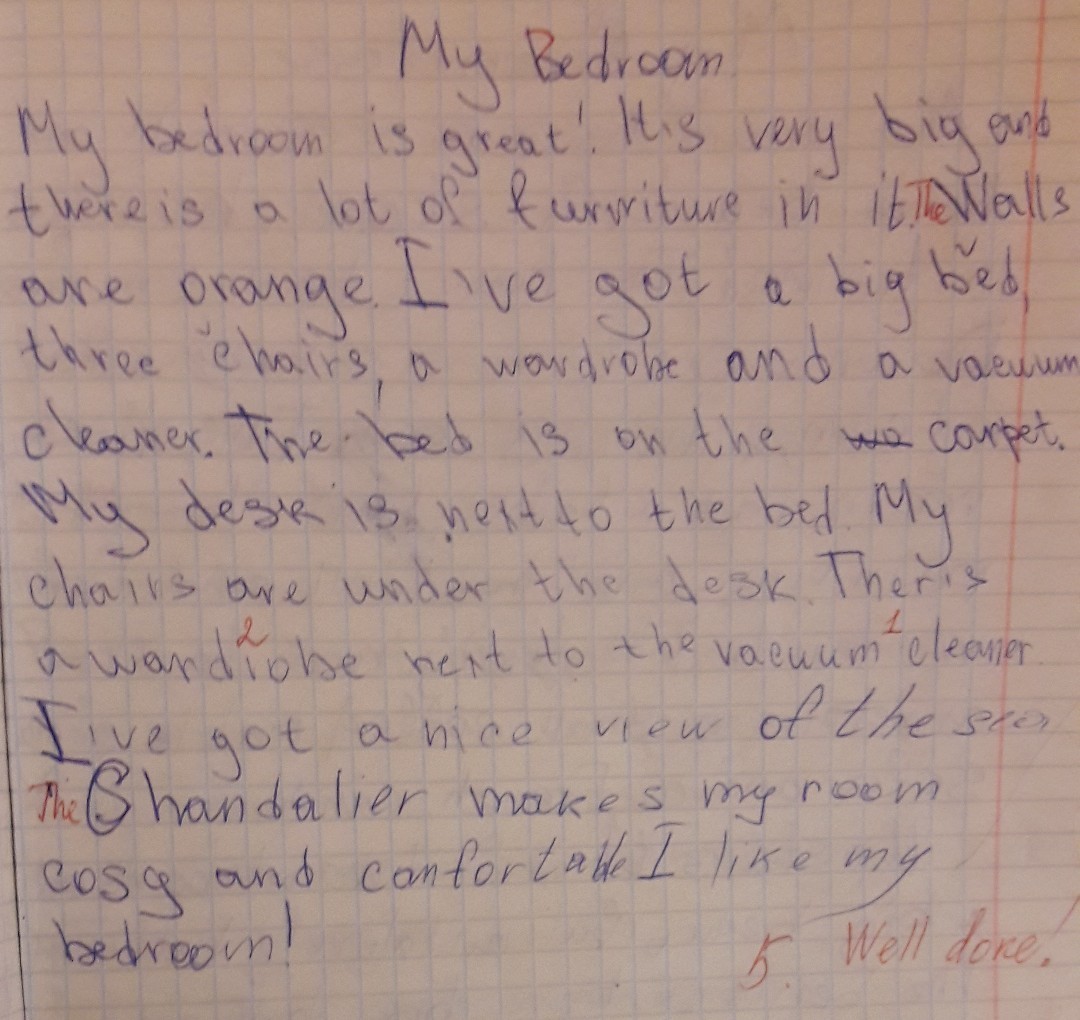 My Bedroom
My bedroom is great! It's very big and
there is a lot of furniture in it. The Walls
are orange. I've got a big bed,
three chairs, a wardrobe and a vacuum
cleaner. The bed is on the wa carpet.
My desk is next to the bed. My
chairs are under the desk. Ther is
2 1
a wardrobe next to the vacuum cleaner.
I've got a nice view of the sea
The Shandalier makes my room
cosy and confortable I like my
bedroom!
5. Well done!